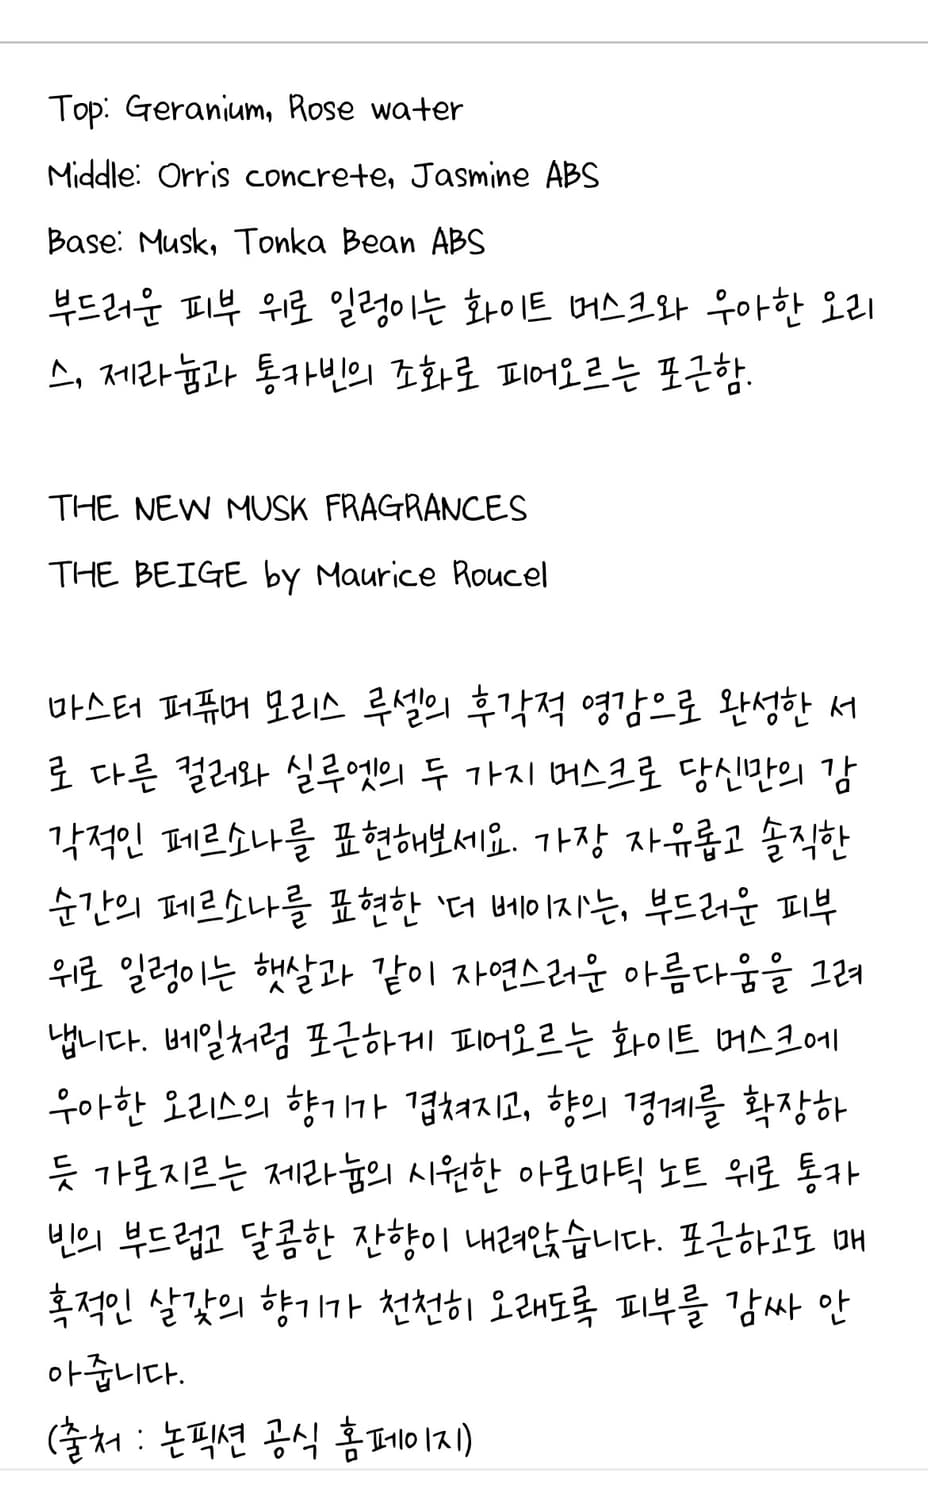 Top: Geranium, Rose water
Middle: Orris concrete, Jasmine ABS
Base: Musk, Tonka Bean ABS
부드러운 피부 위로 일렁이는 화이트 머스크와 우아한 오리
스, 제라늄과 통카빈의 조화로 피어오르는 포근함.
THE NEW MUSK FRAGRANCES
THE BEIGE by Maurice Roucel
마스터 퍼퓨머 모리스 루셀의 후각적 영감으로 완성한 서
로 다른 컬러와 실루엣의 두 가지 머스크로 당신만의 감
각적인 페르소나를 표현해보세요. 가장 자유롭고 솔직한
순간의 페르소나를 표현한 '더 베이지'는, 부드러운 피부
위로 일렁이는 햇살과 같이 자연스러운 아름다움을 그려
냅니다. 베일처럼 포근하게 피어오르는 화이트 머스크에
우아한 오리스의 향기가 겹쳐지고, 향의 경계를 확장하
듯 가로지르는 제라늄의 시원한 아로마틱 노트 위로 통카
빈의 부드럽고 달콤한 잔향이 내려앉습니다. 포근하고도 매
혹적인 살갗의 향기가 천천히 오래도록 피부를 감싸 안
아줍니다.
(출처 : 논픽션 공식 홈페이지)